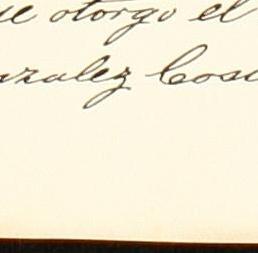 ue otorgo el
nzalez Cos